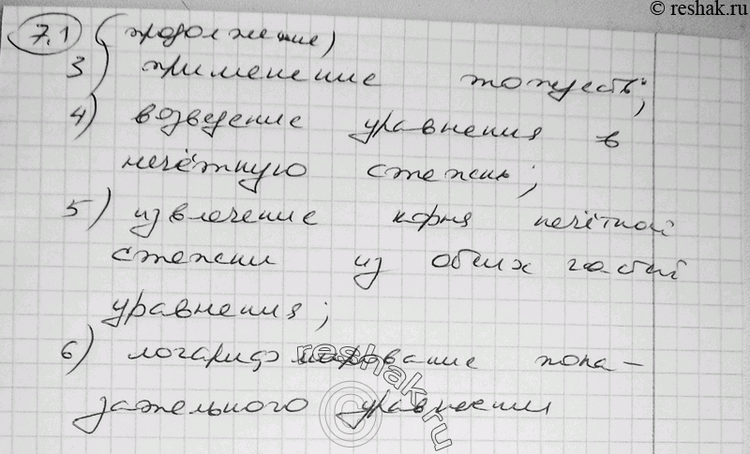 © reshak.ru
7.1 (продолжение)
3) применение тождеств;
4) возведение уравнения в
нечётную степень;
5) извлечение корня нечётной
степени из обеих частей
уравнения;
6) логарифмирование пока-
зательного уравнения
reshak.ru